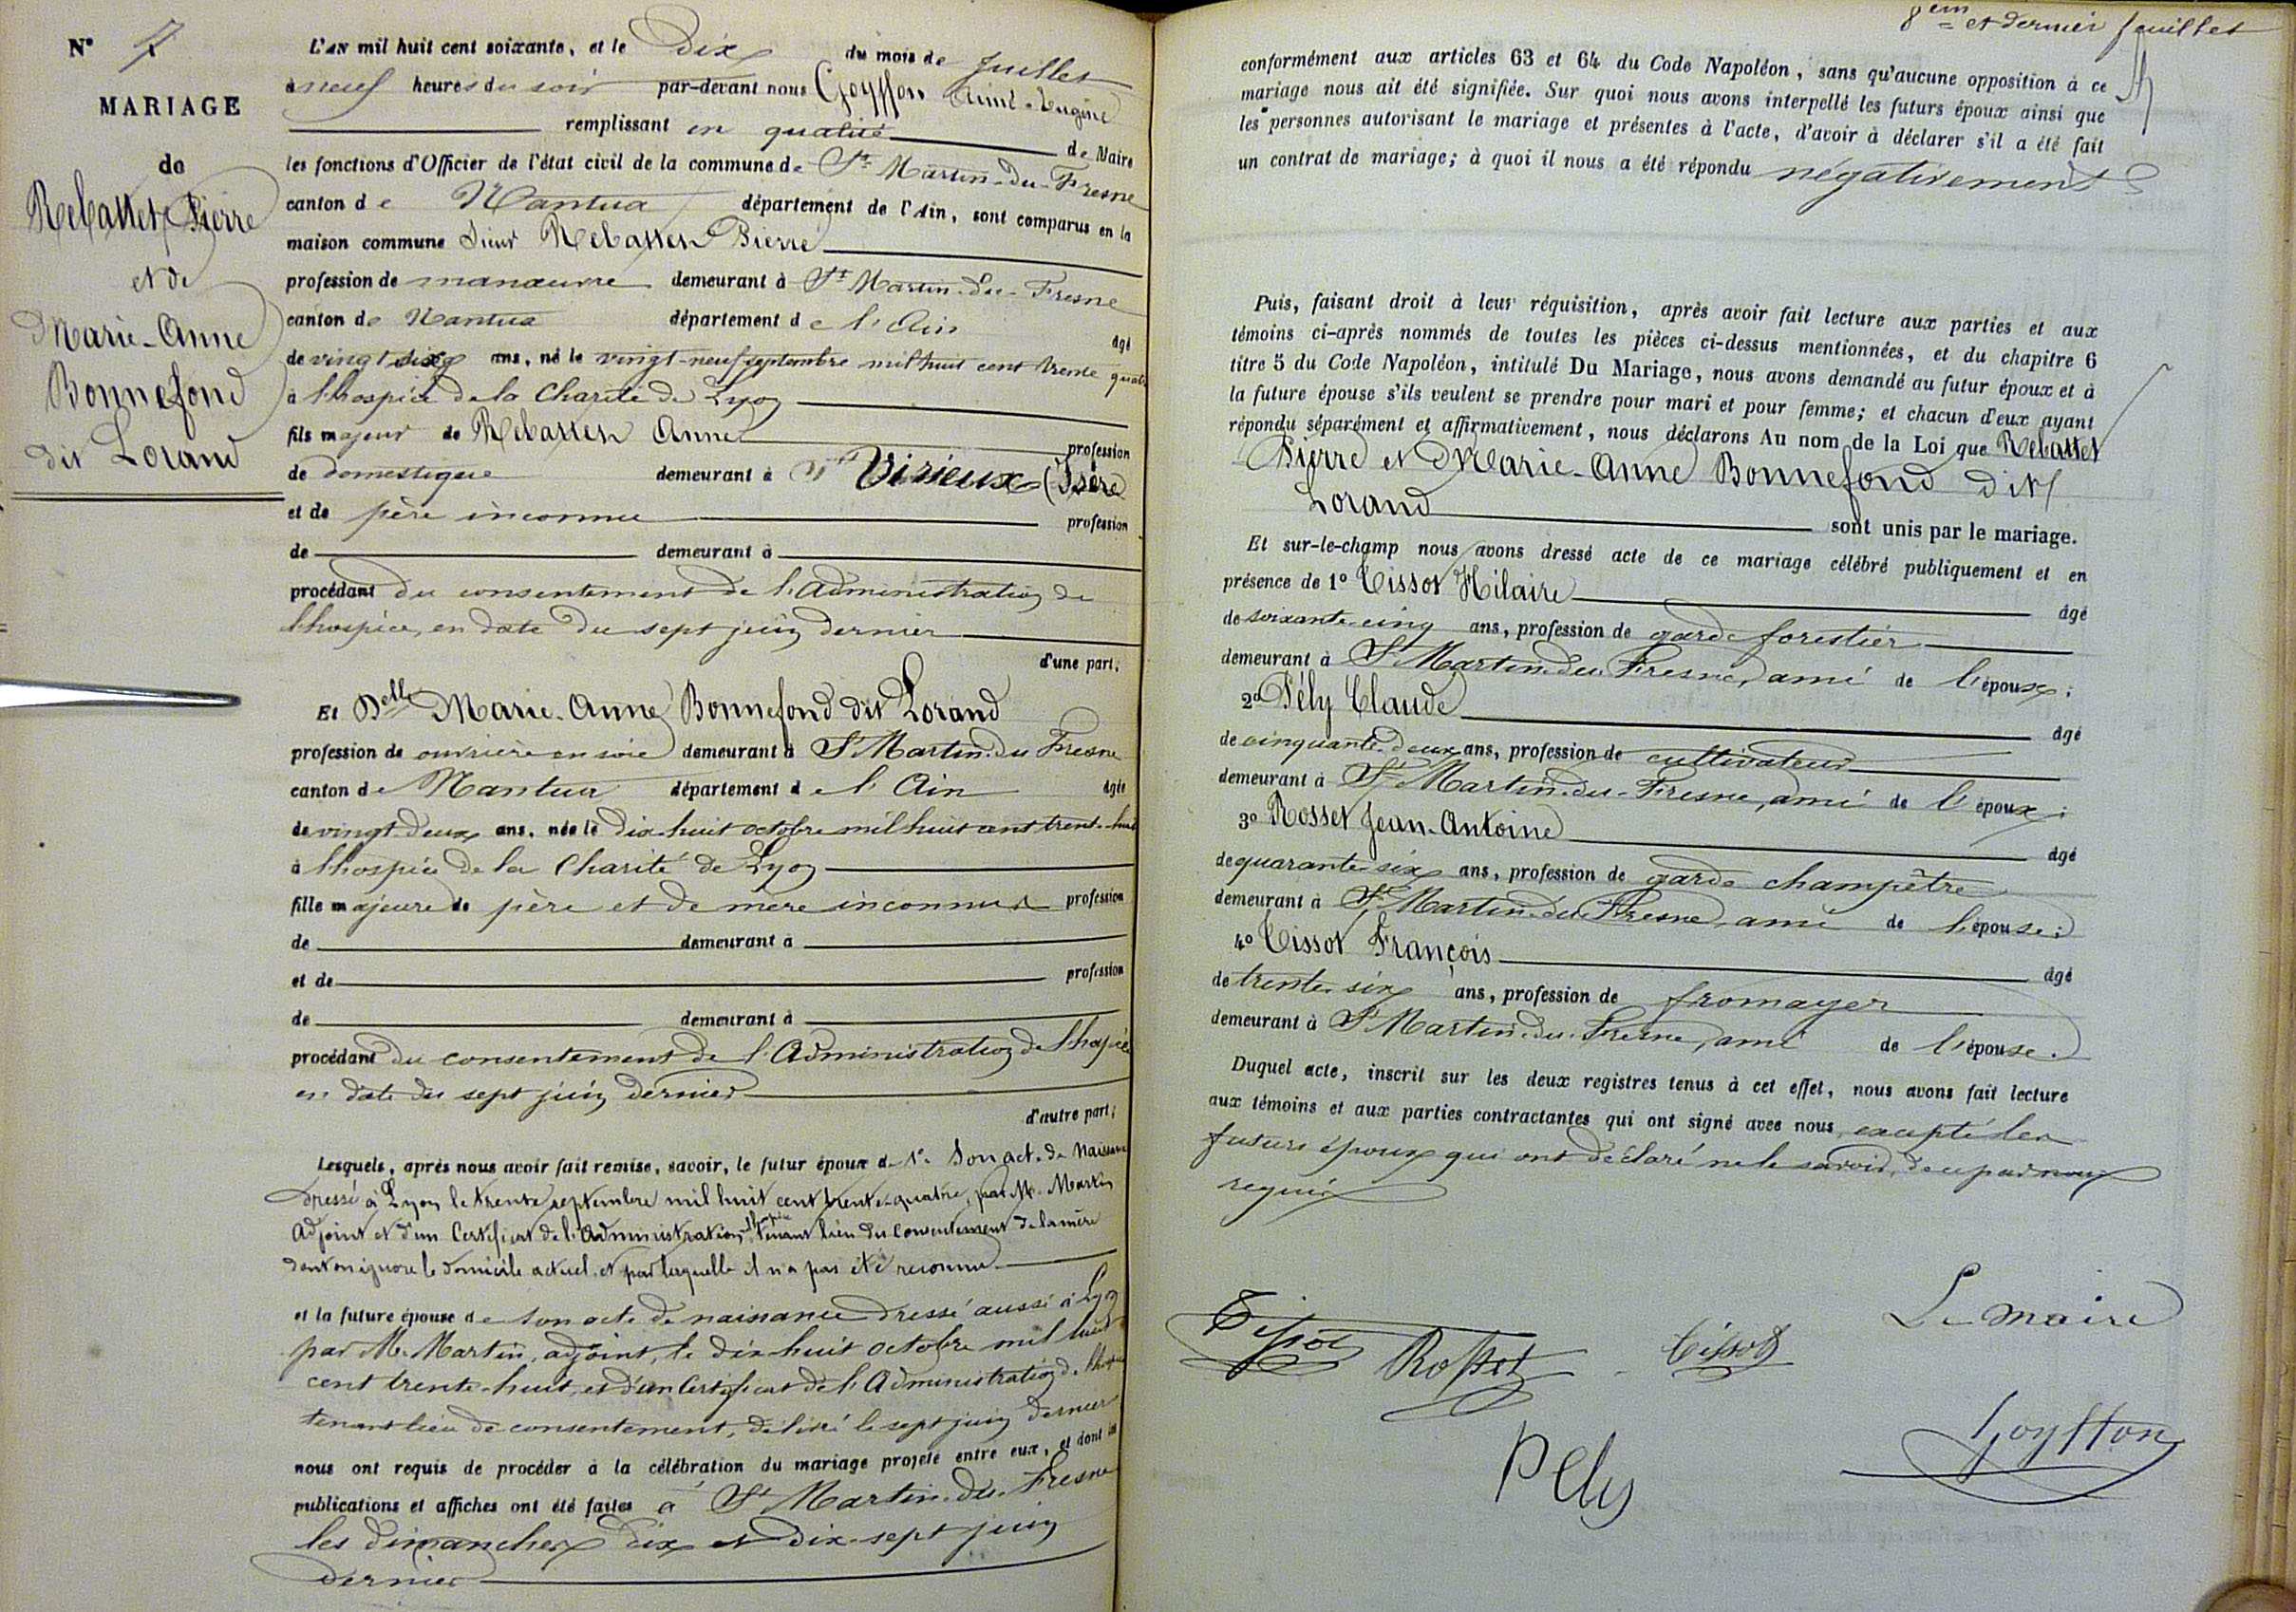 N° 7
MARIAGE
de
Rebasset Pierre
et de
Marie-Anne
Bonnefond
dit Lorand
L'AN mil huit cent soixante, et le Dix du mois de Juillet
à neuf heures du soir par-devant nous Goyffon Aimé-Eugène
remplissant en qualité de Maire
les fonctions d'Officier de l'état civil de la commune de St Martin-du-Fresne
canton de Nantua département de l'Ain, sont comparus en la
maison commune Sieur Rebasset Pierre
profession de manœuvre demeurant à St Martin-du-Fresne
canton de Nantua département de l'Ain âgé
de vingt six ans, né le vingt-neuf septembre mil huit cent trente quatre
à l'hospice de la Charité de Lyon
fils majeur de Rebasset Anne profession
de domestique demeurant à Virieux (Isère
et de père inconnu profession
de demeurant à
procédant du consentement de l'Administration de
l'hospice, en date du sept juin dernier
d'une part.
Et Delle Marie-Anne Bonnefond dit Lorand
profession de ouvrière en soie demeurant à St Martin-du Fresne
canton de Nantua département de l'Ain âgée
de vingt deux ans, née le dix-huit octobre mil huit cent trent-huit
à l'hospice de la Charité de Lyon
fille majeure de père et de mère inconnus profession
de demeurant à
et de profession
de demeurant à
procédant du consentement de l'Administration de l'hospice
en date du sept juin dernier
d'autre part;
Lesquels, après nous avoir fait remise, savoir, le futur époux de 1° Son act. de Naissance
dressé à Lyon le trente septembre mil huit cent trente-quatre, par M. Martin
Adjoint et d'un Certificat de l'Administration l'hospice tenant lieu du Consentement de la mère
dont on ignore le domicile actuel, et par laquelle il n'a pas été reconnu
et la future épouse de son acte de naissance dressé aussi à Lyon
par M. Martin, adjoint, le dix huit octobre mil huit
cent trente-huit, et d'un Certificat de l'Administration de l'hospice
tenant lieu de consentement, délivré le sept juin dernier
nous ont requis de procéder à la célébration du mariage projeté entre eux, et dont les
publications et affiches ont été faites à St Martin-du-Fresne
les dimanches dix et dix-sept juin
dernier
8em et dernier feuillet
conformément aux articles 63 et 64 du Code Napoléon, sans qu'aucune opposition à ce
mariage nous ait été signifiée. Sur quoi nous avons interpellé les futurs époux ainsi que
les personnes autorisant le mariage et présentes à l'acte, d'avoir à déclarer s'il a été fait
un contrat de mariage; à quoi il nous a été répondu négativement
Puis, faisant droit à leur réquisition, après avoir fait lecture aux parties et aux
témoins ci-après nommés de toutes les pièces ci-dessus mentionnées, et du chapitre 6
titre 5 du Code Napoléon, intitulé Du Mariage, nous avons demandé au futur époux et à
la future épouse s'ils veulent se prendre pour mari et pour femme; et chacun d'eux ayant
répondu séparément et affirmativement, nous déclarons Au nom de la Loi que Rebasset
Pierre et Marie-Anne Bonnefond dit
Lorand sont unis par le mariage.
Et sur-le-champ nous avons dressé acte de ce mariage célébré publiquement et en
présence de 1° Tissot Hilaire âgé
de soixante-cinq ans, profession de garde forestier
demeurant à St Martin-du-Fresne, ami de l'époux;
2° Pély Claude âgé
de cinquante-deux ans, profession de cultivateur
demeurant à St Martin-du-Fresne, ami de l'époux;
3° Rosset Jean-Antoine âgé
de quarante-six ans, profession de garde champêtre
demeurant à St Martin-du-Fresne, ami de l'épouse;
4° Tissot François âgé
de trente-six ans, profession de fromager
demeurant à St Martin-du-Fresne, ami de l'épouse.
Duquel acte, inscrit sur les deux registres tenus à cet effet, nous avons fait lecture
aux témoins et aux parties contractantes qui ont signé avec nous, excepté les
futurs époux qui ont déclaré ne le savoir, de ce par nous
requis
Le maire
Tissot Rosset Tissot
Pely Goyffon